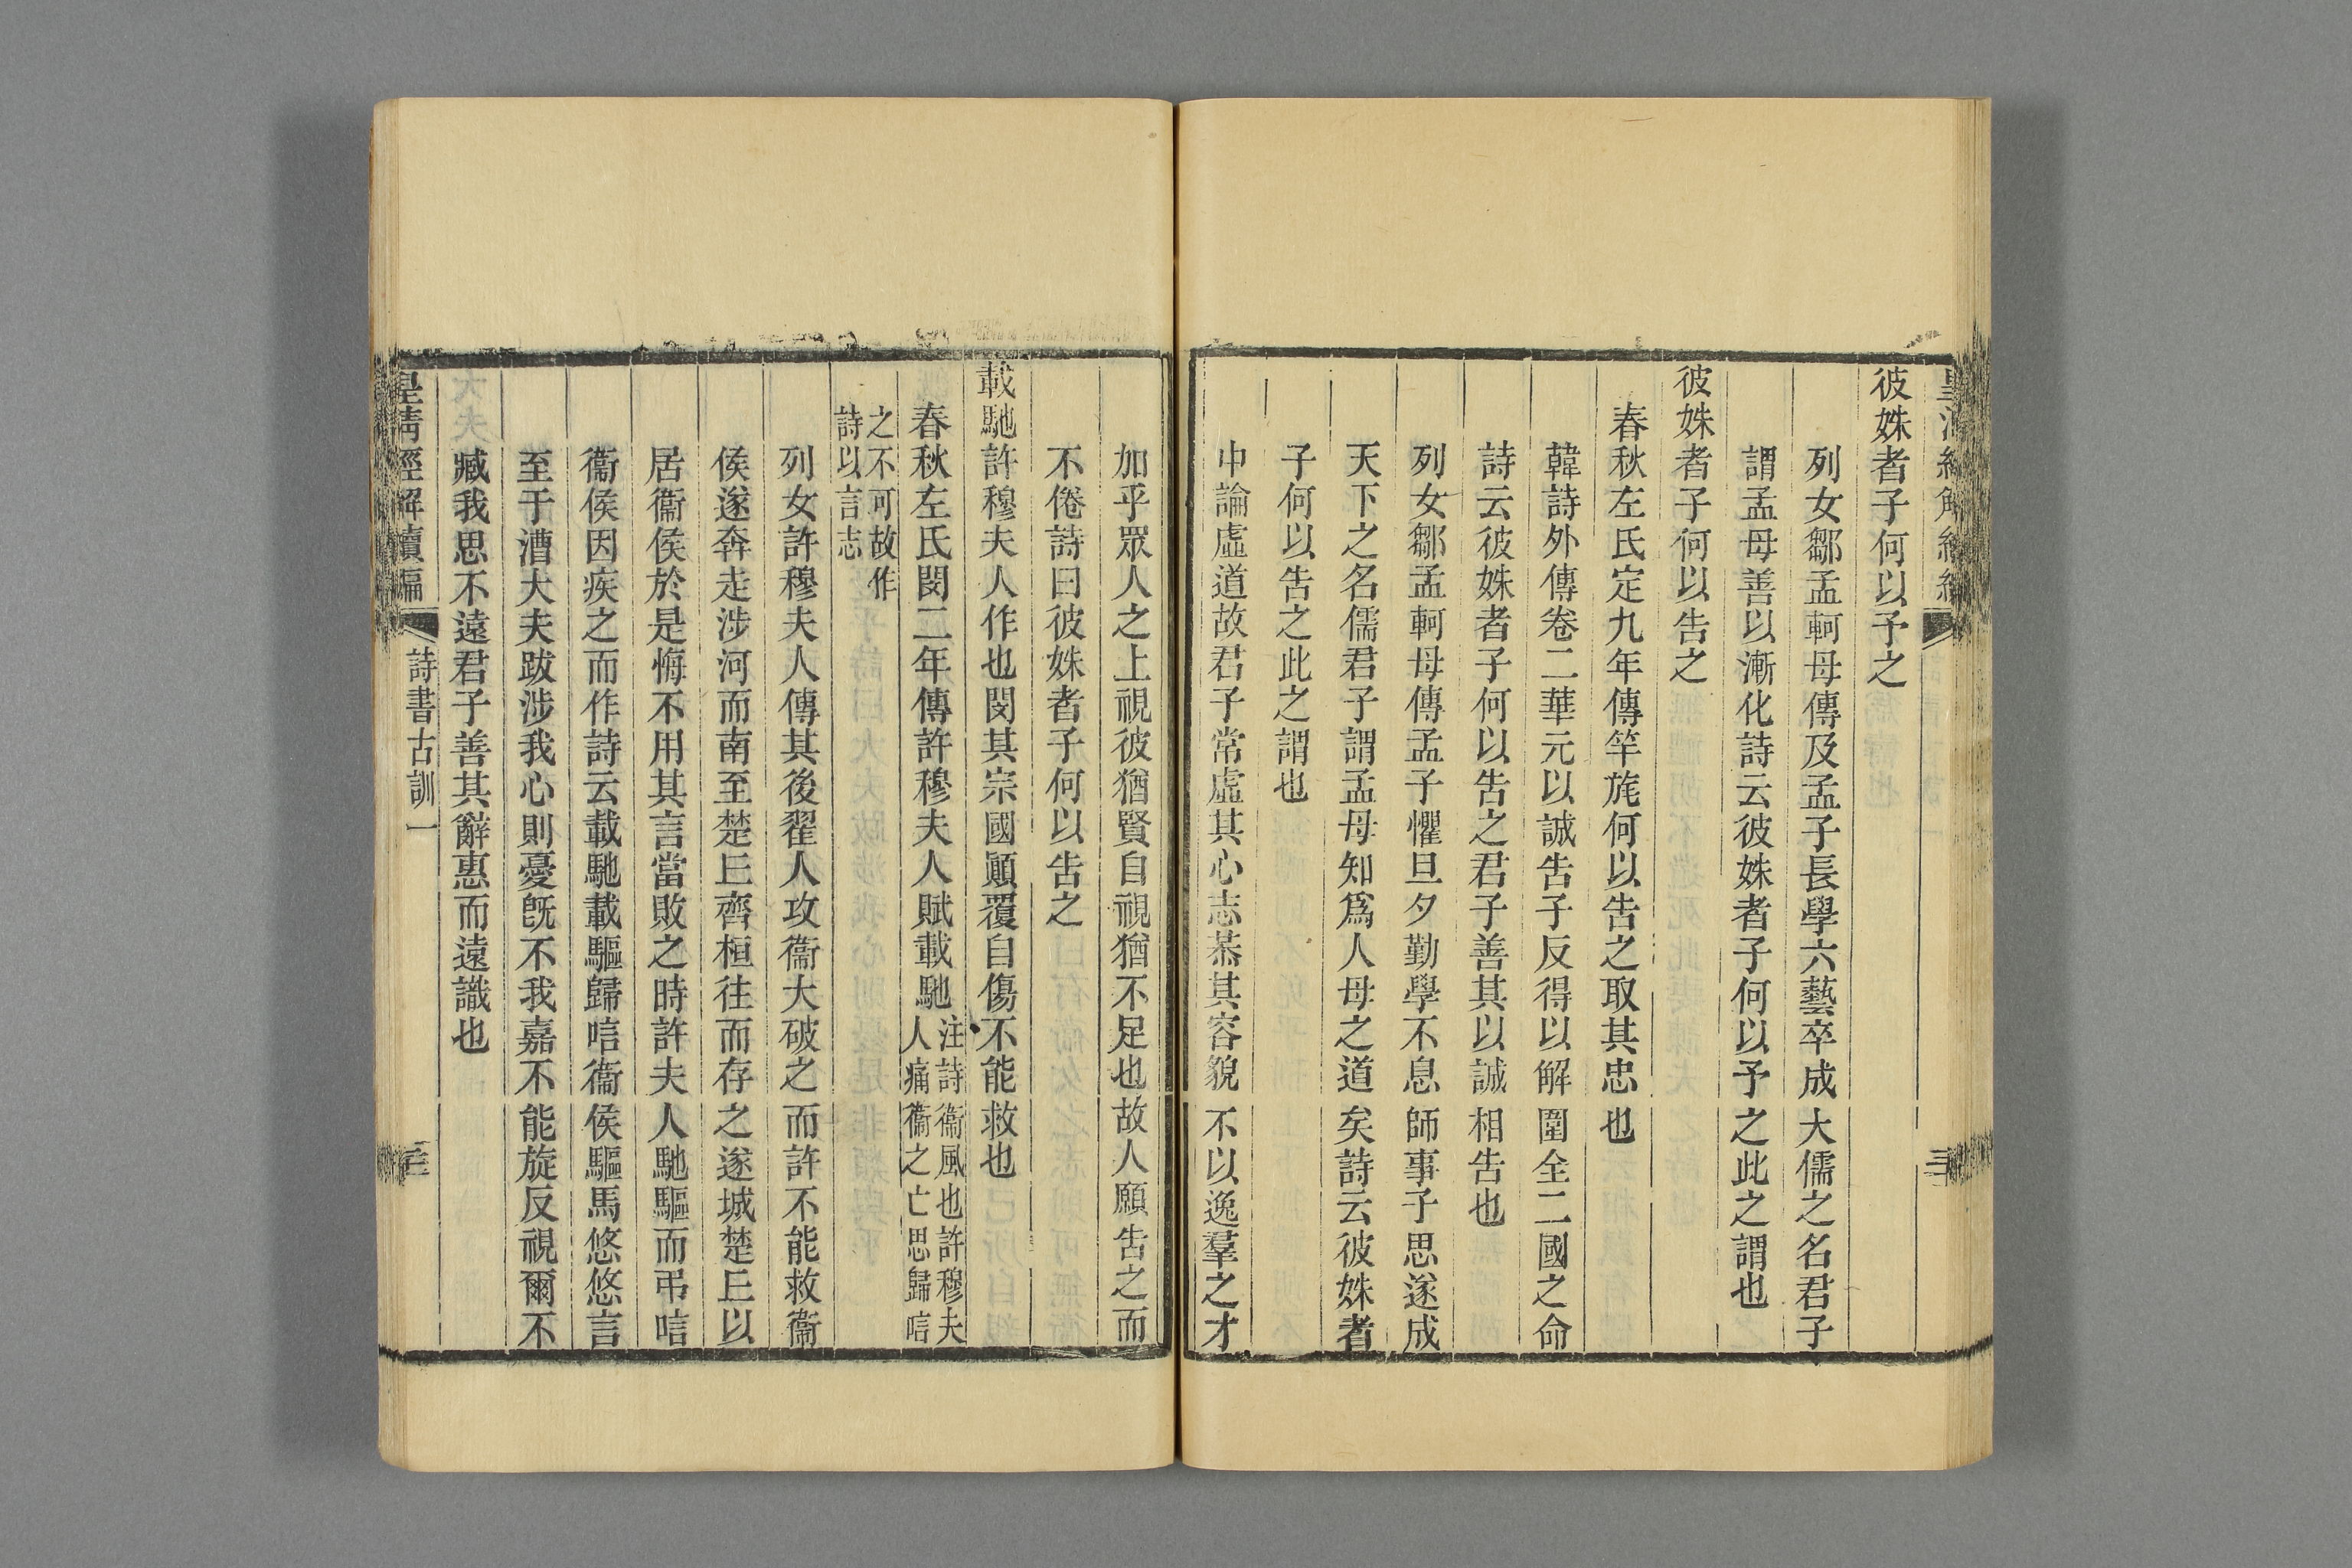 彼姝者子何以予之
列女鄒孟軻母傳及孟子長學六藝卒成大儒之名君子
謂孟母善以漸化詩云彼姝者子何以予之此之謂也
彼姝者子何以告之
春秋左氏定九年傳竿旄何以告之取其忠也
韓詩外傳卷二華元以誠告子反得以解圍全二國之命
詩云彼姝者子何以告之君子善其以誠相告也
列女鄒孟軻母傳孟子懼旦夕勤學不息師事子思遂成
天下之名儒君子謂孟母知爲人母之道矣詩云彼姝者
子何以告之此之謂也
中論虛道故君子常虛其心志恭其容貌不以逸羣之才
加乎眾人之上視彼猶賢自視猶不足也故人願告之而
不倦詩曰彼姝者子何以告之
載馳許穆夫人作也閔其宗國顚覆自傷不能救也
春秋左氏閔二年傳許穆夫人賦載馳
注詩衞風也許穆夫
人痛衞之亡思歸唁
之不可故作
詩以言志
列女許穆夫人傳其後翟人攻衞大破之而許不能救衞
侯遂奔走涉河而南至楚𠀌齊桓往而存之遂城楚𠀌以
居衞侯於是悔不用其言當敗之時許夫人馳驅而弔唁
衞侯因疾之而作詩云載馳載驅歸唁衞侯驅馬悠悠言
至于漕大夫跋涉我心則憂旣不我嘉不能旋反視爾不
臧我思不遠君子善其辭惠而遠識也
皇淸經解續編
詩書古訓一